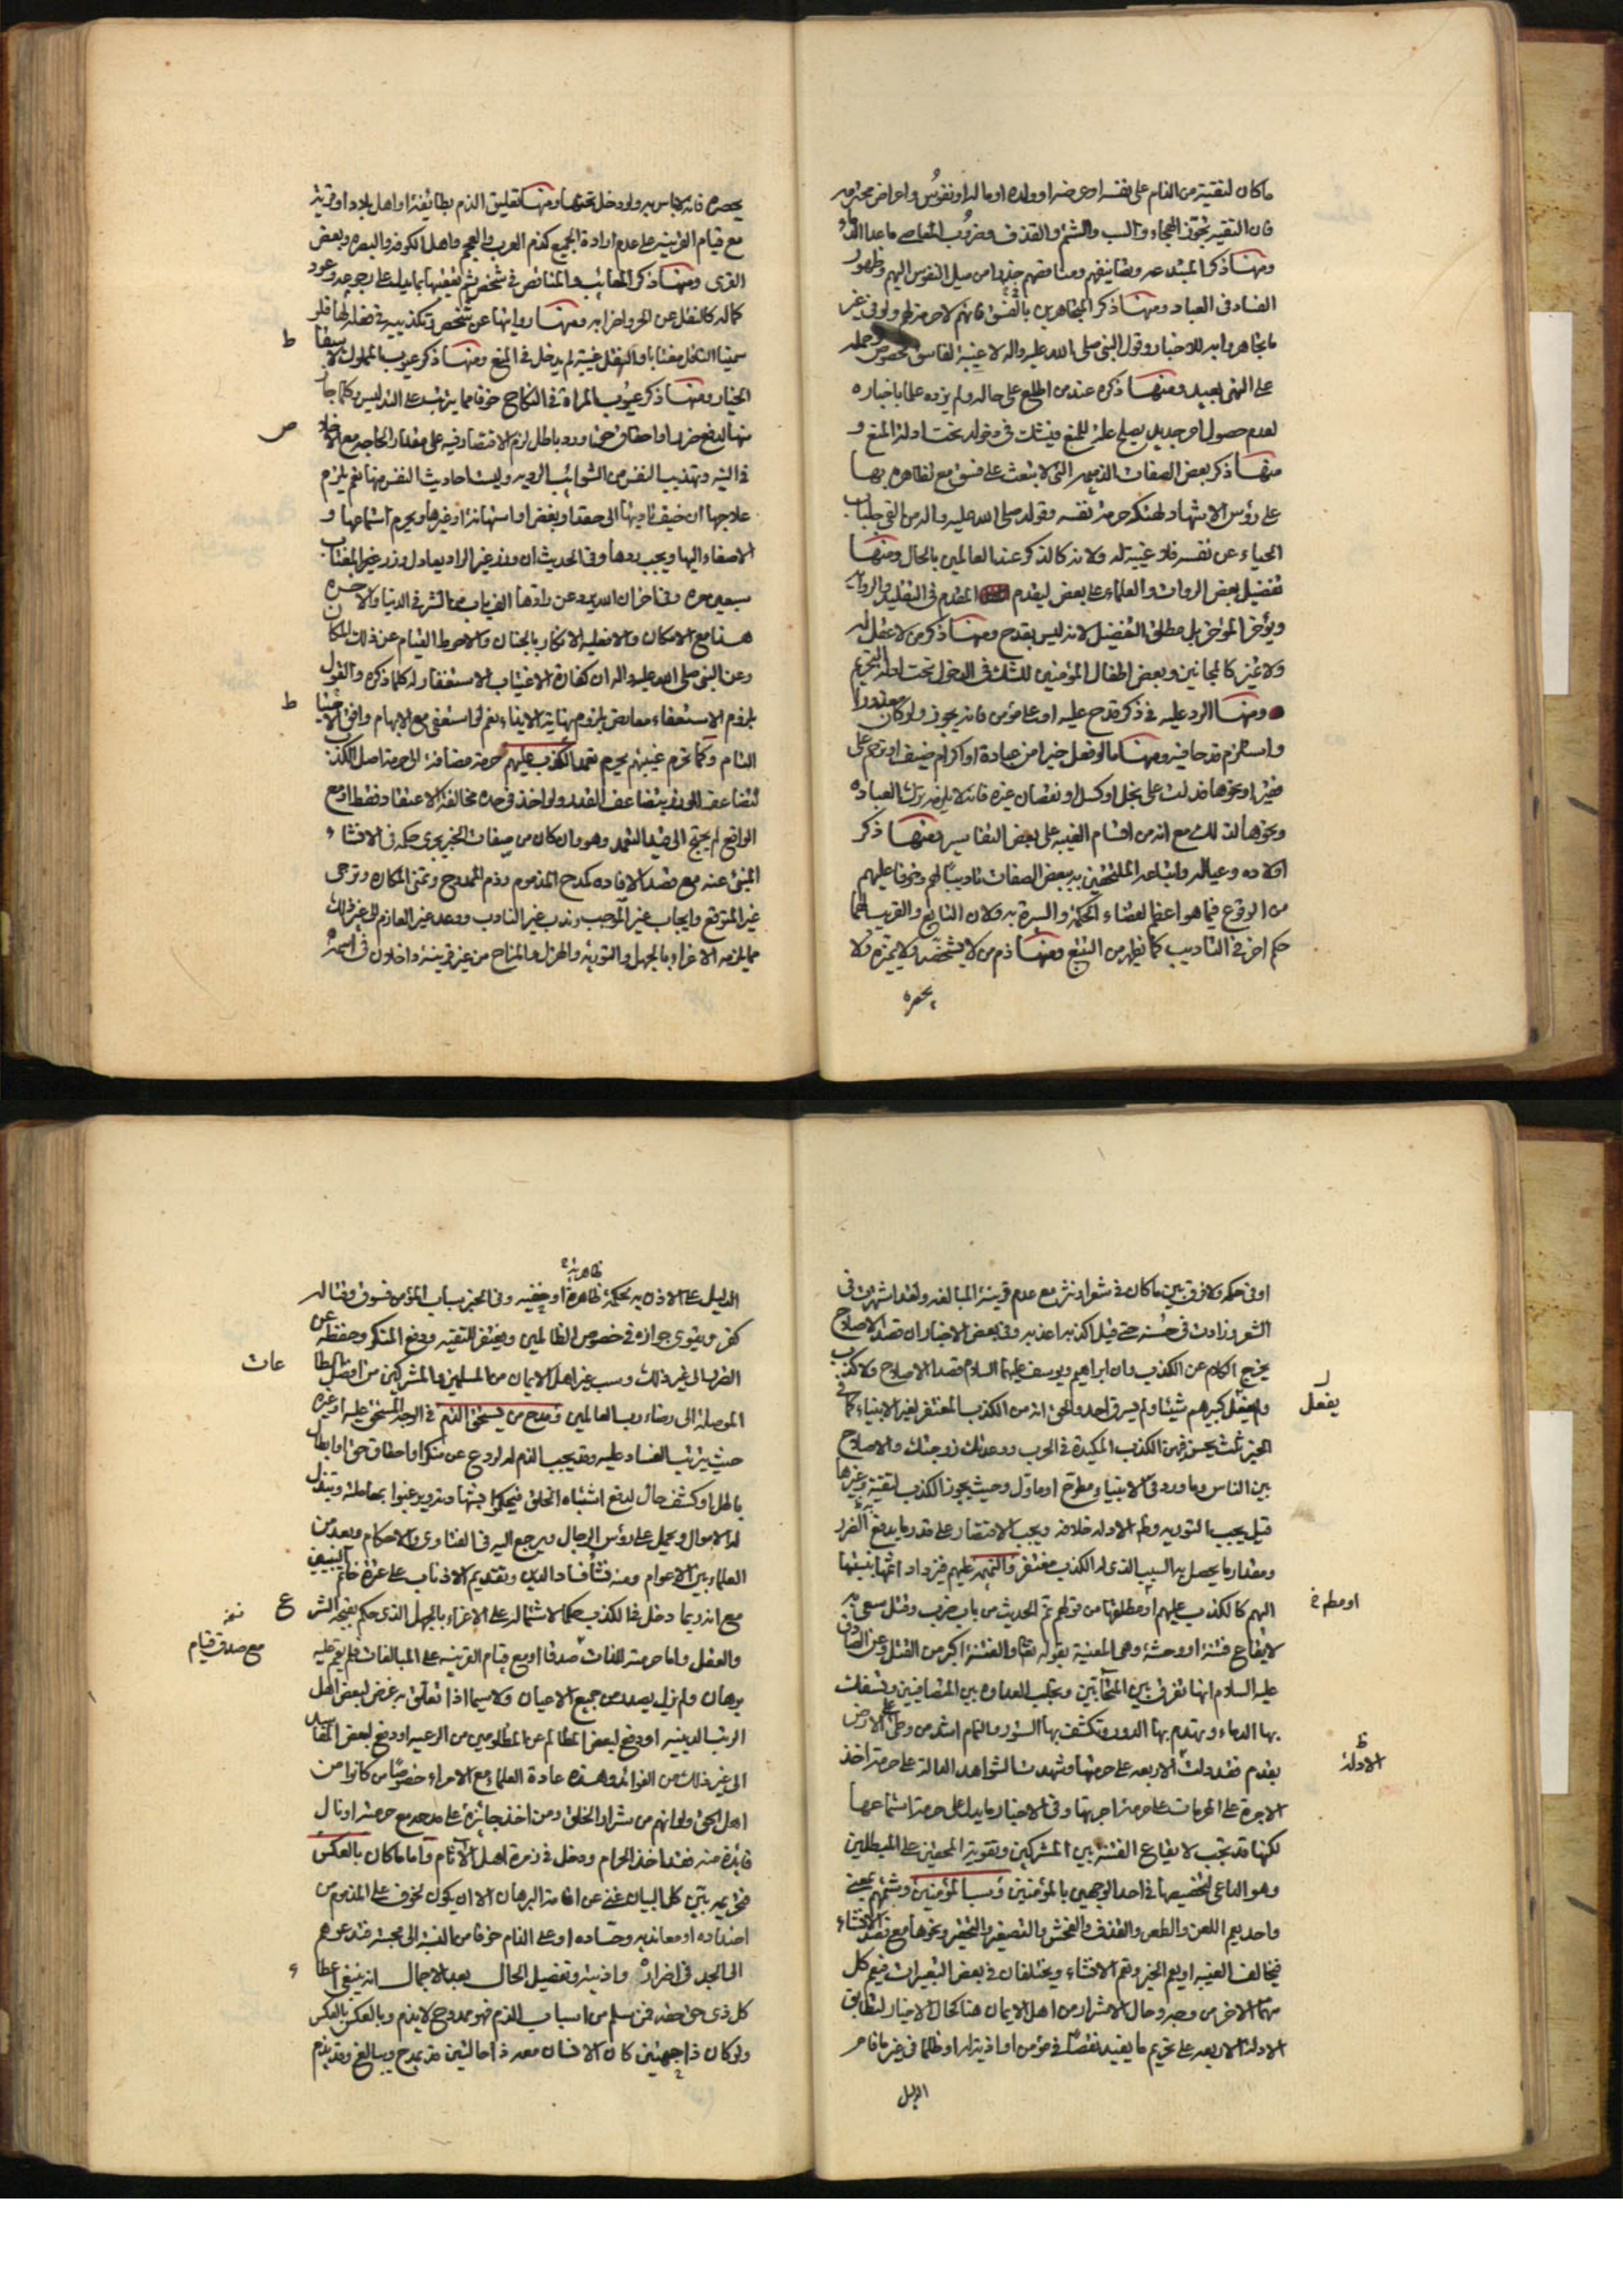 ما كان لتقية من الناس على نفسه او عرضه او ولده او ماله او نفوس واعراض محترمه
فان التقيه تجوّز الهجاء والسب والشتم والقذف وضروب المعاصي ما عدا الدماء
ومنها ذكر المبتدعه وتصانيفهم ومناقصهم حذرا من ميل النفوس اليهم وظهور
الفساد في العباد ومنها ذكر المتجاهرين بالفسق فانهم لا حرمة لهم ولو في غير
ما تجاهروا به للاخبار وقول النبي صلى الله عليه واله لا غيبة لفاسق مخصوص وحمله
على النهي بعيد ومنها ذكره عند من اطلع على حاله ولم يزده علما باخباره
لعدم حصول امر جديد يصلح علة للمنع فيشك في دخوله تحت ادلة المنع و
منها ذكر بعض الصفات الذميمه التي لا تبعث على فسق مع تظاهره بها
على رؤس الاشهاد لهتكه حرمة نفسه وقوله صلى الله عليه واله من القى جلباب
الحياء عن نفسه فلا غيبة له ولانه كالذكر عند العالمين بالحال ومنها
تفضيل بعض الروات والعلماء على بعض ليقدم المقدم في التقليد والروايه
ويؤخر المؤخر بل مطلق التفضيل لانه ليس بقدح ومنها ذكر من لا عقل له
ولا تميز كالمجانين وبعض اطفال المؤمنين للشك في الدخول تحت ادلة التحريم
ومنها الرد عليه في ذكر قدح عليه او على مؤمن فانه يجوز ولو كان معذورا
واستلزم قدحا فيه ومنها ما لو فعل خيرا من عيادة او اكرام ضيف او ترحم على
فقير او نحوها فدلت على بخل او كسل او نقصان غيره فانه لا يلزمه ترك العباده
ونحوها لذلك مع انه من اقسام الغيبه على بعض التفاسير ومنها ذكر
اولاده وعياله واتباعه الملتحقين به ببعض الصفات تاديبا لهم وخوفا عليهم
من الوقوع فيما هو اعظم لقضاء الحكمة والسيرة به ولان التابع والقريب لهما
حكم اخر في التاديب كما يظهر من التتبع ومنها ذم من لا يشخصه ولا يميزه ولا
يحصره
يحصره فانه لا باس به ولو دخل تحتها ومنها تعليق الذم بطائفة او اهل بلاد او قرية
مع قيام القرينه على عدم ارادة الجميع كذم العرب والعجم واهل الكوفه والبصره وبعض
القرى ومنها ذكر المعائب والنقائص في شخص ثم تعقيبها بما يدل على رجوعه وعود
كماله كالنقل عن الحر واضرابه ومنها روايتها عن شخص وتكذيبه في نقله لها فلو
سمينا الناقل مغتابا والنقل غيبة لم يدخل في المنع ومنها ذكر عيوب المملوك لا يبقا
الخيار ومنها ذكر عيوب المراة في النكاح خوفا مما يترتب على التدليس وكلما جاز
منها لدفع ضرر او احقاق حق ورد باطل لزم الاقتصار فيه على مقدار الحاجه مع الاخلاص
في النيه وتهذيب النفس من الشوائب الرديه وليست احاديث النفس منها نعم يلزم
علاجها ان خيف تاديتها الى حقد او بغض او استهانة او غيرها ويحرم استماعها و
الاصغاء اليها ويجب ردها وفي الحديث ان وزر غير الراد يعادل وزر غير المغتاب
سبعين مره وفي اخر ان الله يرد عن رادها الف باب من الشر في الدنيا والاخره
هذا مع الامكان والا فعليه الانكار بالجنان والاحوط القيام عن ذلك المكان
وعن النبي صلى الله عليه واله ان كفارة الاغتياب الاستغفار له كلما ذكره والقول
بلزوم الاستعفاء معارض بلزوم نهاية الايذاء نعم لو استعفى مع الابهام وافق الاحتياط
التام وكما تحرم غيبتهم يحرم تعمد الكذب عليهم حرمة مضافة الى حرمة اصل الكذب
لتضاعف الوزر بتضاعف القدر ولو اخذ في حده مخالفة الاعتقاد فقط او مع
الواقع لم يحتج الى قيد التعمد وهو وان كان من صفات الخبر يجرى حكمه في الانشاء
المبني عنه مع قصد الافاده كمدح المذموم وذم الممدوح وتمني المكاره وترجي
غير المتوقع وايجاب غير الموجب وندب غير النادب ووعد غير العازم الى غير ذلك
مما يلزمه الاغراء بالجهل والتورية والهزل والمزاح من غير قرينة داخلان في اسمه
او في حكمه ولا فرق بين ما كان في شعر او نثر مع عدم قرينة المبالغه ولقد اشتهرت في
الشعر وزادت في حسنه حتى قيل اكذبه اعذبه وفي بعض الاخبار ان قصد الاصلاح
يخرج الكلام عن الكذب وان ابراهيم ويوسف عليهما السلام قصدا الاصلاح ولا كذب
ولم يفعل كبيرهم شيئا ولم يسرق احد والحق انه من الكذب المغتفر لغير الانبياء كما في
يفعل
الخبر ثلث يحسن فيهن الكذب المكيدة في الحرب ووعدتك زوجتك والاصلاح
بين الناس وما ورد في الانبياء مطرح او ماول وحيث يجوز الكذب لتقية وغيرها
قيل يجب التوريه وظاهر الادله خلافه ويجب الاقتصار على قدر ما يدفع الضرر
ومقدار ما يحصل به السبب الذي له الكذب مغتفر والنميمه عليهم فيزداد اثمها بنسبتها
اليهم كالكذب عليهم او مطلقا من قولهم نم الحديث من باب ضرب وقتل سعى به
لايقاع فتنة او وحشة وهي المعنية بقوله تعالى والفتنة اكبر من القتل وعن الصادق
عليه السلام انها تفرق بين المتحابين وتجلب العداوه بين المتصافيين وتسفك
بها الدماء وتهدم بها الدور وتكشف بها الستور والنمام اشد من وطئ على الارض
بقدم فقد دلت الاربعه على حرمتها وشهدت الشواهد الدالة على حرمة اخذ
الادلة
الاجرة على المحرمات على حرمة اجرتها وفي الاخبار ما يدل على حرمة استماعها
لكنها قد تجب لايقاع الفتنة بين المشركين وتقوية المحقين على المبطلين
وهو الداعي لتخصيصها في احد الوجهين بالمؤمنين وسب المؤمنين وشتمهم بمعنى
واحد يعم اللعن والطعن والقذف والفحش والتصغير والتحقير ونحوها مع قصد الانشاء
فيخالف الغيبه او يعم الخبر وتعم الانشاء ويختلفان في بعض التعبيرات فيعم كل
منهما الاخر من وجه وحال الاشرار من اهل الايمان هنا كحال الاخيار لتطابق
الادلة الاربعه على تحريم ما يفيد نقصا في مؤمن او اذية له او ظلما في غير ما قام
الدليل
الدليل على الاذن به لحكمة ظاهرة او خفيه وفي الخبر سباب المؤمن فسوق وقتاله
كفر ويقوى جوازه في خصوص الظالمين ويغتفر للتقيه ودفع المنكر وحفظه عن
الضرر الى غير ذلك وسب غير اهل الايمان من المسلمين والمشركين من افضل الطا
عات
الموصلة الى رضاء رب العالمين ومدح من يستحق الذم في الوجه المستحق عليه او غيره
حيث يترتب الفساد عليه وقد يجب الذم له لردع عن منكر او احقاق حق او ابطال
باطل او كشف حال لدفع اشتباه الخلق
له الاموال ويحمل على رؤس الرجال ويرجع اليه في الفتاوى والاحكام ويعد من
العلماء بين الاعوام ومنه نشأ فساد الدين وتقديم الاذناب على عترة خاتم النبيين
مع انه ربما دخل في الكذب حكما لاشتماله على الاغراء بالجهل الذي حكم بقبحه الشرع
والعقل واما حرمة للذات صدقا او مع قيام القرينه على المبالغات فلم يقم عليه
مع صدق قيام
برهان ولم يزل يصدر من جميع الاعيان ولا سيما اذا تعلق به غرض لبعض اهل
الرتب الدينيه او دفع لبعض المظالم عن المظلومين من الرعيه او دفع لبعض المفاسد
الى غير ذلك من الفوائد وهذه عادة العلماء مع الامراء خصوصا من كانوا من
اهل الحق ولو انهم من شرار الخلق ومن اخذ جائزة على مدحه مع حرمته او نال
فائدة منه فقد اخذ الحرام ودخل في زمرة اهل الاثام واما ما كان بالعكس
فتحريمه بين كل البيان غني عن اقامة البرهان الا ان يكون لخوف على المذموم من
اضداده او معانديه وحساده او على الذام خوفا من النسبة الى محبته فتدعوهم
الى الجد في اضراره واذيته وتفصيل الحال بعد الاجمال انه ينبغي اعطاء
كل ذي حق حقه فمن سلم من اسباب الذم فهو ممدوح لا يذم وبالعكس بالعكس
ولو كان ذا جهتين كان الانسان معه ذا حالتين قد يمدح ويبالغ وقد يذم